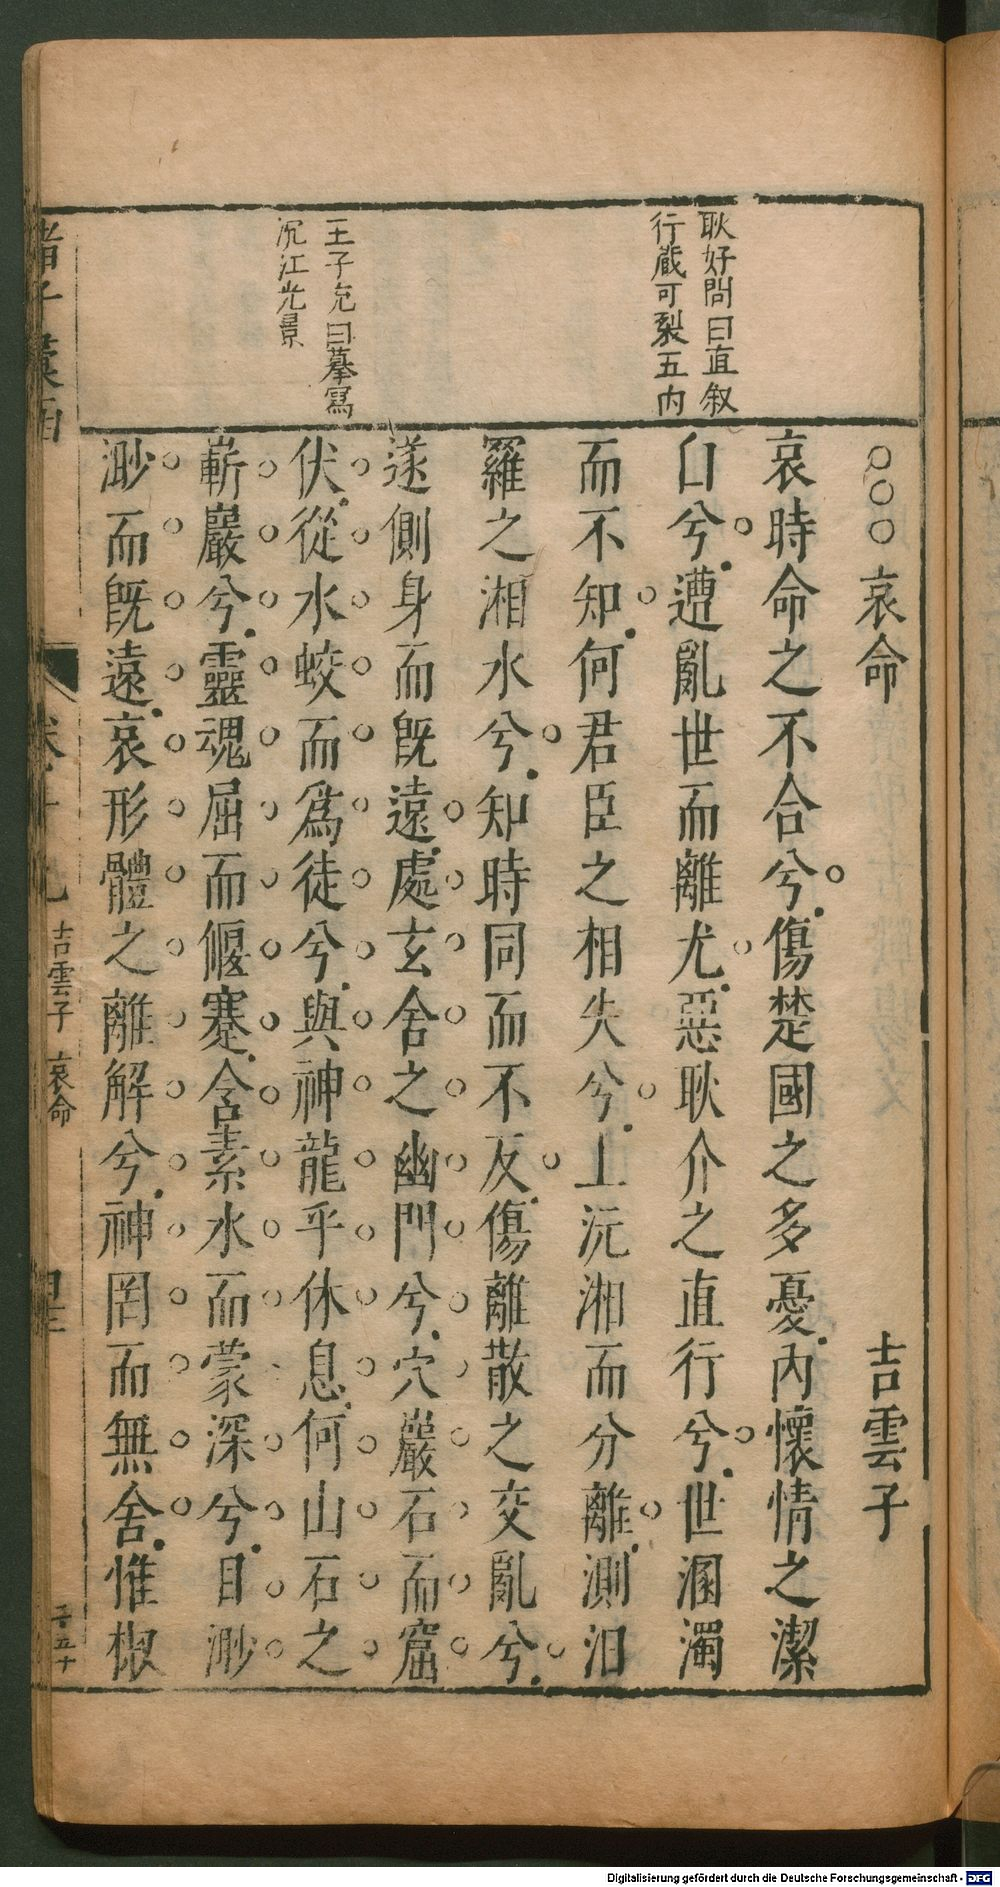 耿好問曰直叙
行藏可裂五內
王子充曰摹寫
沉江光景
○○○哀命
吉雲子
哀時命之不合兮傷楚國之多憂內懷情之潔
白兮遭亂世而離尤惡耿介之直行兮世溷濁
而不知何君臣之相失兮上沅湘而分離測汨
羅之湘水兮知時固而不反傷離散之交亂兮
遂側身而既遠處玄舍之幽門兮穴巖石而窟
伏從水蛟而為徒兮與神龍乎休息何山石之
嶄巖兮靈魂屈而偃蹇含素水而蒙深兮日渺
渺而既遠哀形體之離解兮神罔而無舍惟椒
諸子彙函
吉雲子 哀命
子五十
Digitalisierung gefördert durch die Deutsche Forschungsgemeinschaft - DFG